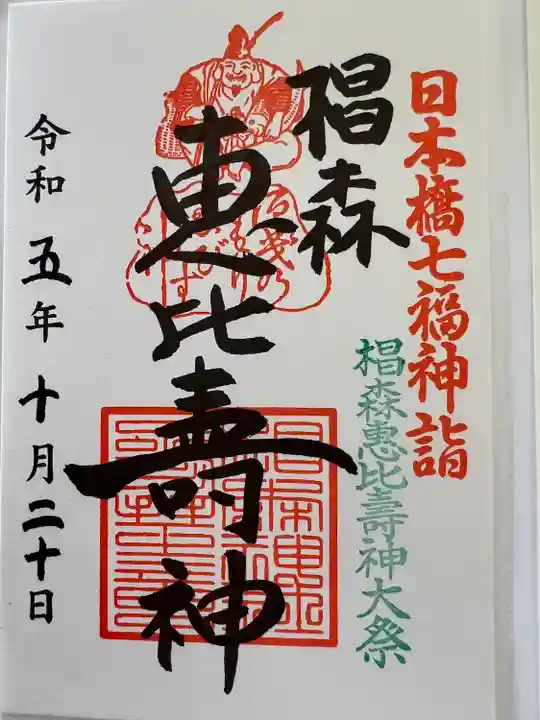 日本橋七福神詣
椙森恵比壽神大祭
椙森
恵比壽神
令和五年十月二十日